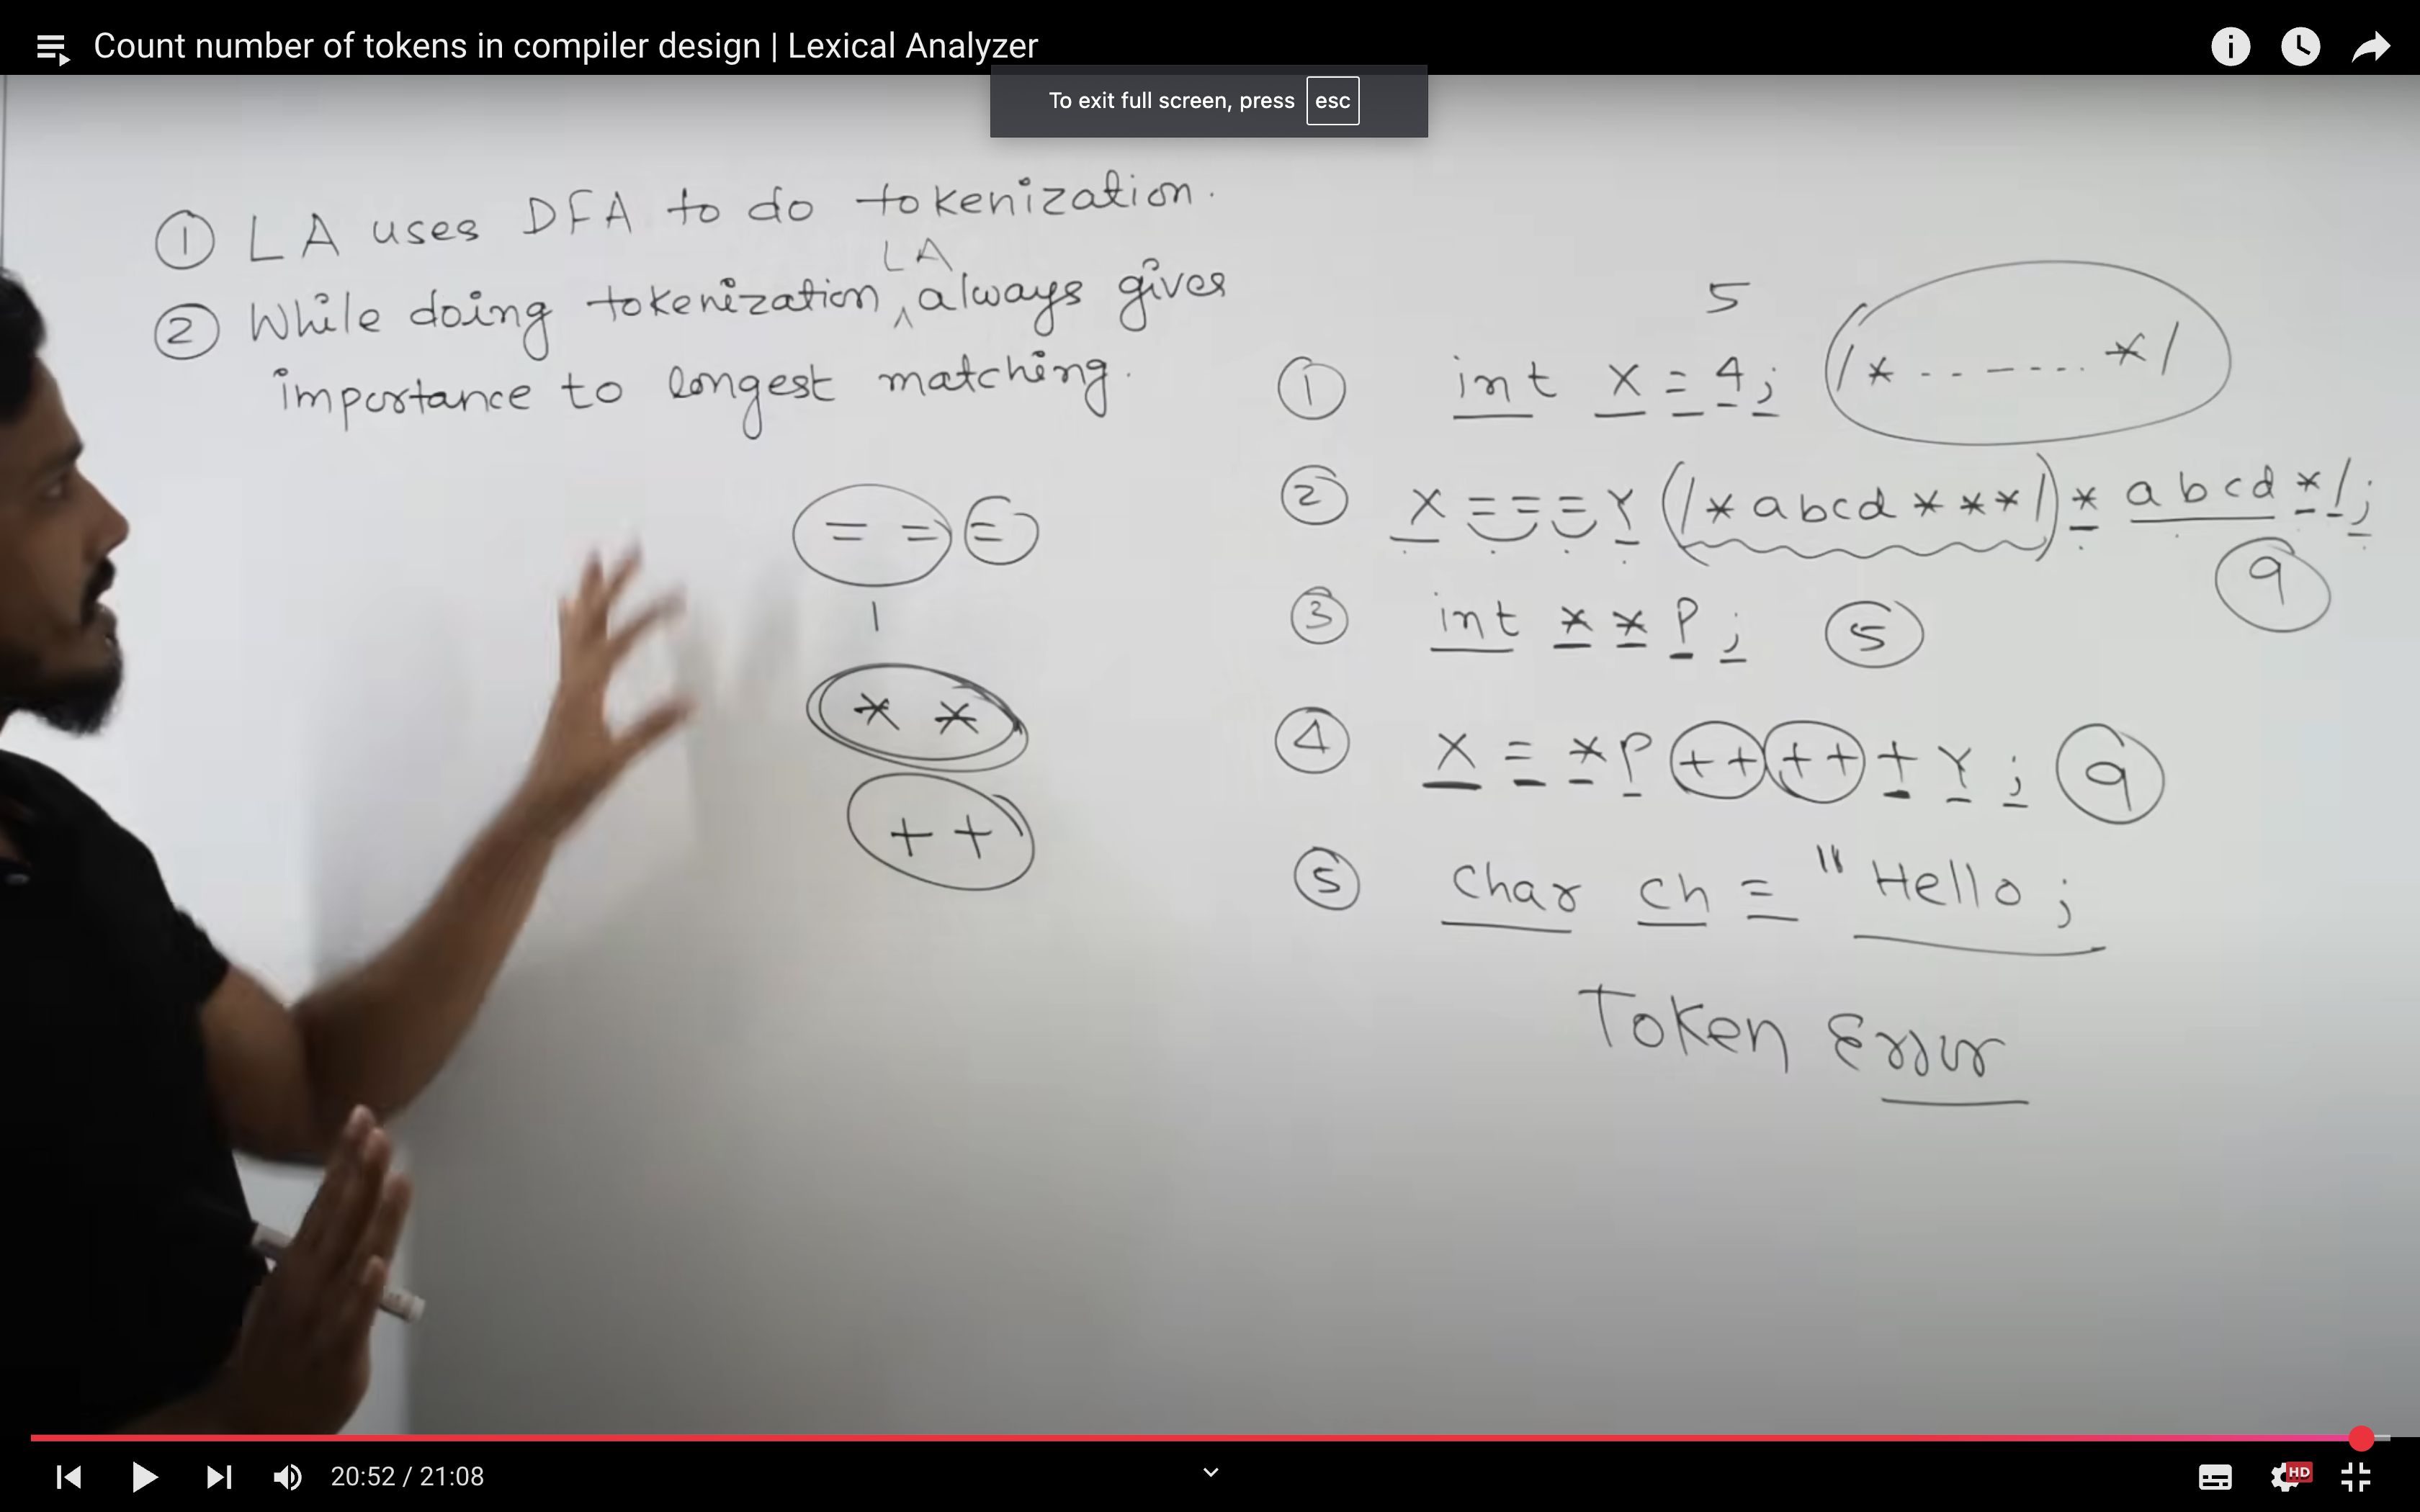 Count number of tokens in compiler design | Lexical Analyzer
To exit full screen, press esc
① LA uses DFA to do tokenization.
LA
② While doing tokenization ^ always gives
importance to longest matching.
= = =
1
* *
+ +
5
① int X = 4; /* - - - - - - - */
② X = = = Y (/* abcd ***/) * abcd */; 
9
③ int * * P ; 5
④ X = * P ++ ++ + Y ; 9
⑤ char ch = "Hello ;
Token Error
20:52 / 21:08
HD